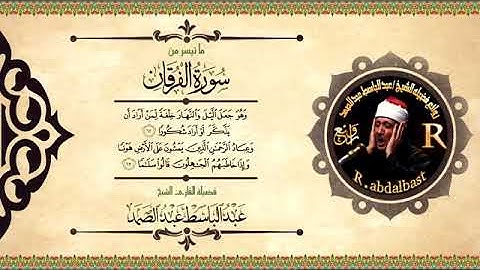 ما تيسر من
سُورَةُ الْفُرْقَان
وَهُوَ الَّذِي جَعَلَ اللَّيْلَ وَالنَّهَارَ خِلْفَةً لِمَنْ أَرَادَ أَن
يَذَّكَّرَ أَوْ أَرَادَ شُكُورًا
وَعِبَادُ الرَّحْمَٰنِ الَّذِينَ يَمْشُونَ عَلَى الْأَرْضِ هَوْنًا
وَإِذَا خَاطَبَهُمُ الْجَاهِلُونَ قَالُوا سَلَامًا
فضيلة القارئ الشيخ
عَبْدُ الْبَاسِطِ عَبْدُ الصَّمَد
روائع فضيلة الشيخ / عبدالباسط عبدالصمد
روائع
R
R. abdalbast